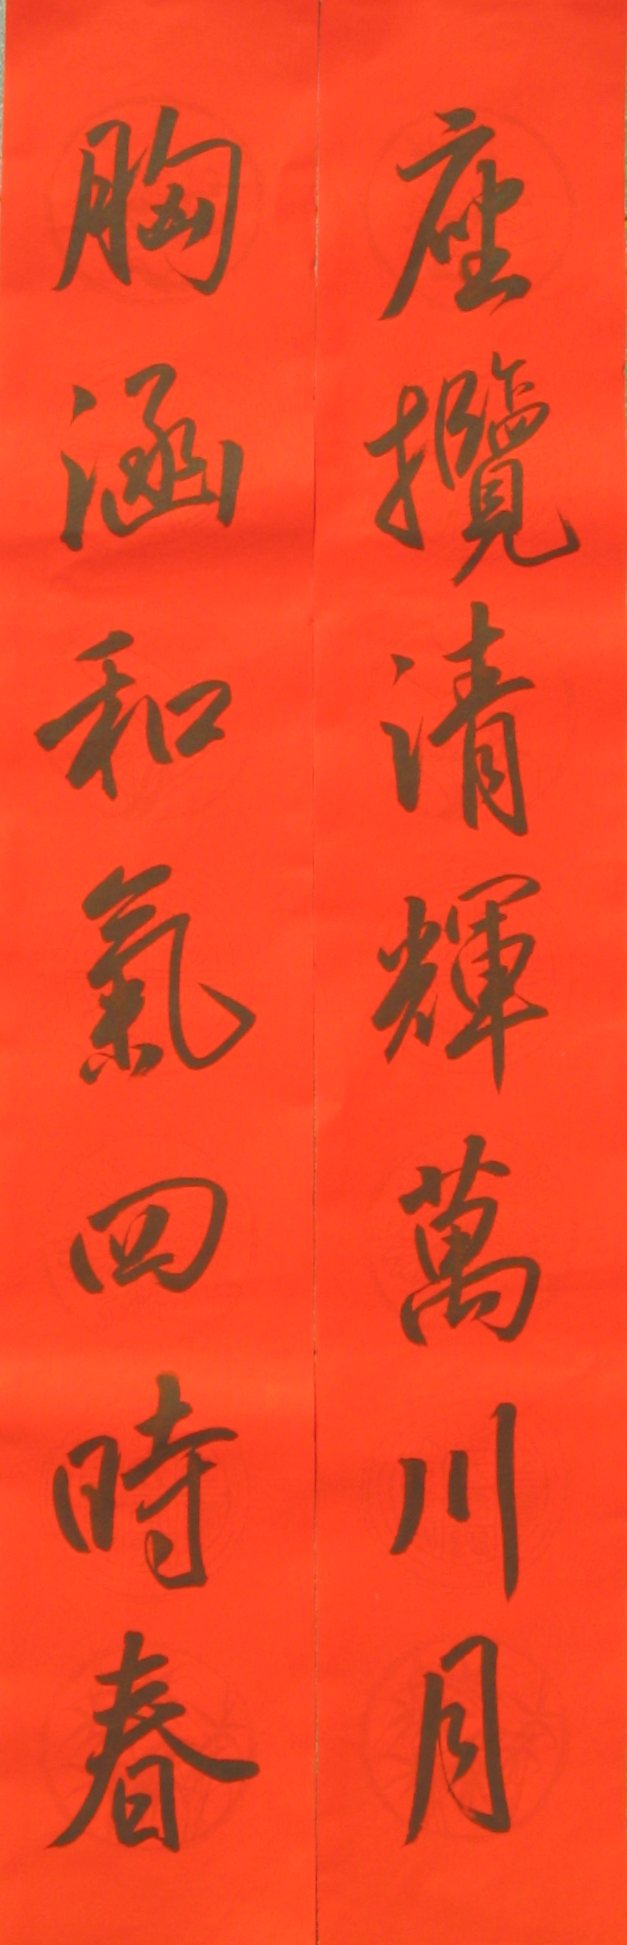 座攬清輝萬川月
胸涵和氣四時春